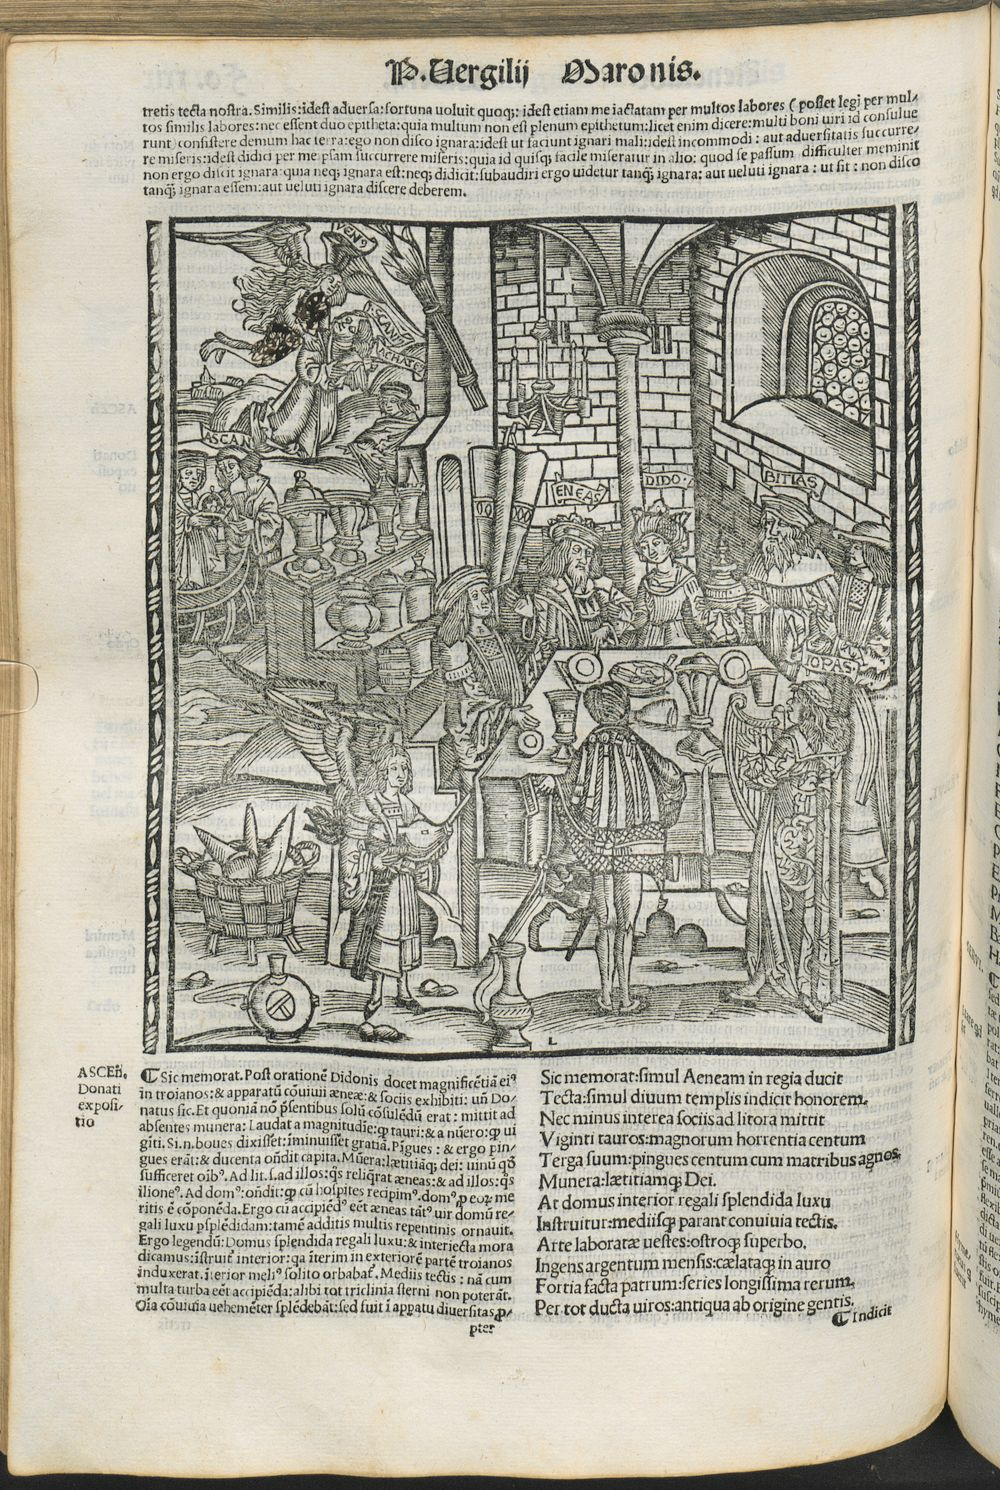 P. Vergilij Maronis.
tretis tecta nostra. Similis: idest aduersa: fortuna uoluit quoqȝ: idest etiam me iactatam per multos labores ( posset legi per mul-
tos similis labores: nec essent duo epitheta: quia multum non est plenum epithetum: licet enim dicere: multi boni uiri id consulue
runt) consistere demum hac terra: ego non disco ignara: idest ut faciunt ignari mali: idest incommodi: aut aduersitatis succurre-
re miseris: idest didici per me ipsam succurrere miseris: quia id quisqȝ facile miseratur in alio: quod se passum difficulter meminit
non ergo discit ignara: quia neqȝ ignara est: neqȝ didicit: subaudiri ergo uidetur tanq̃ȝ ignara: aut ueluti ignara: ut sit: non disco
tanq̃ȝ ignara essem: aut ueluti ignara discere deberem.
VENꝰ
ASCANI
ACHAT
ASCAN
ENEAS
DIDO
BITIAS
IOPAS
L
ASCEñ.
Donati
exposi/
tio
¶ Sic memorat. Post orationē Didonis docet magnificētiā eiꝰ
in troianos: & apparatū cōuiuii æneæ: & sociis exhibiti: uñ Do/
natus sic. Et quoniā nō p̄sentibus solū cōsulēdū erat: mittit ad
absentes munera: Laudat a magnitudīe: ꝙ tauri: & a nūero: ꝙ ui
gīti. Si.n.boues dixisset: īminuisset gratiā. Pīgues: & ergo pin/
gues erāt: & ducenta oñdit capita. Mūera: lætitiāqȝ dei: uinū qđ
sufficeret oībꝰ. Ad lit. s.ad illos: q̄s reliq̄rat æneas: & ad illos: q̄s
ilioneꝰ. Ad domꝰ: oñdit: ꝙ cū hospites recipimꝰ. domꝰ ꝓ eoꝝ me
ritis ē cōponēda. Ergo cū accipiēdꝰ eēt æneas tātꝰ uir domū re/
gali luxu p̱splēdidam: tamē additis multis repentinis ornauit.
Ergo legendū: Domus splendida regali luxu: & interiecta mora
dicamus: īstruiť interior: qa īterim in exteriorē partē troianos
induxerat. īterior meliꝰ solito orbabať. Mediis tectis: nā cum
multa turba eēt accipiēda: alibi tot triclinia sterni non poterāt.
Oīa cōuiuia uehemēter splēdebāt: sed fuit ī appatu diuersitas ꝓ/
pter
Sic memorat: simul Aeneam in regia ducit
Tecta: simul diuum templis indicit honorem.
Nec minus interea sociis ad litora mittit
Viginti tauros: magnorum horrentia centum
Terga suum: pingues centum cum matribus agnos.
Munera: lætitiamqȝ Dei.
At domus interior regali splendida luxu
Instruitur: mediisqȝ parant conuiuia tectis.
Arte laboratæ uestes: ostroqȝ superbo.
Ingens argentum mensis: cælataqȝ in auro
Fortia facta patrum: series longissima rerum,
Per tot ducta uiros: antiqua ab origine gentis.
¶ Indicit